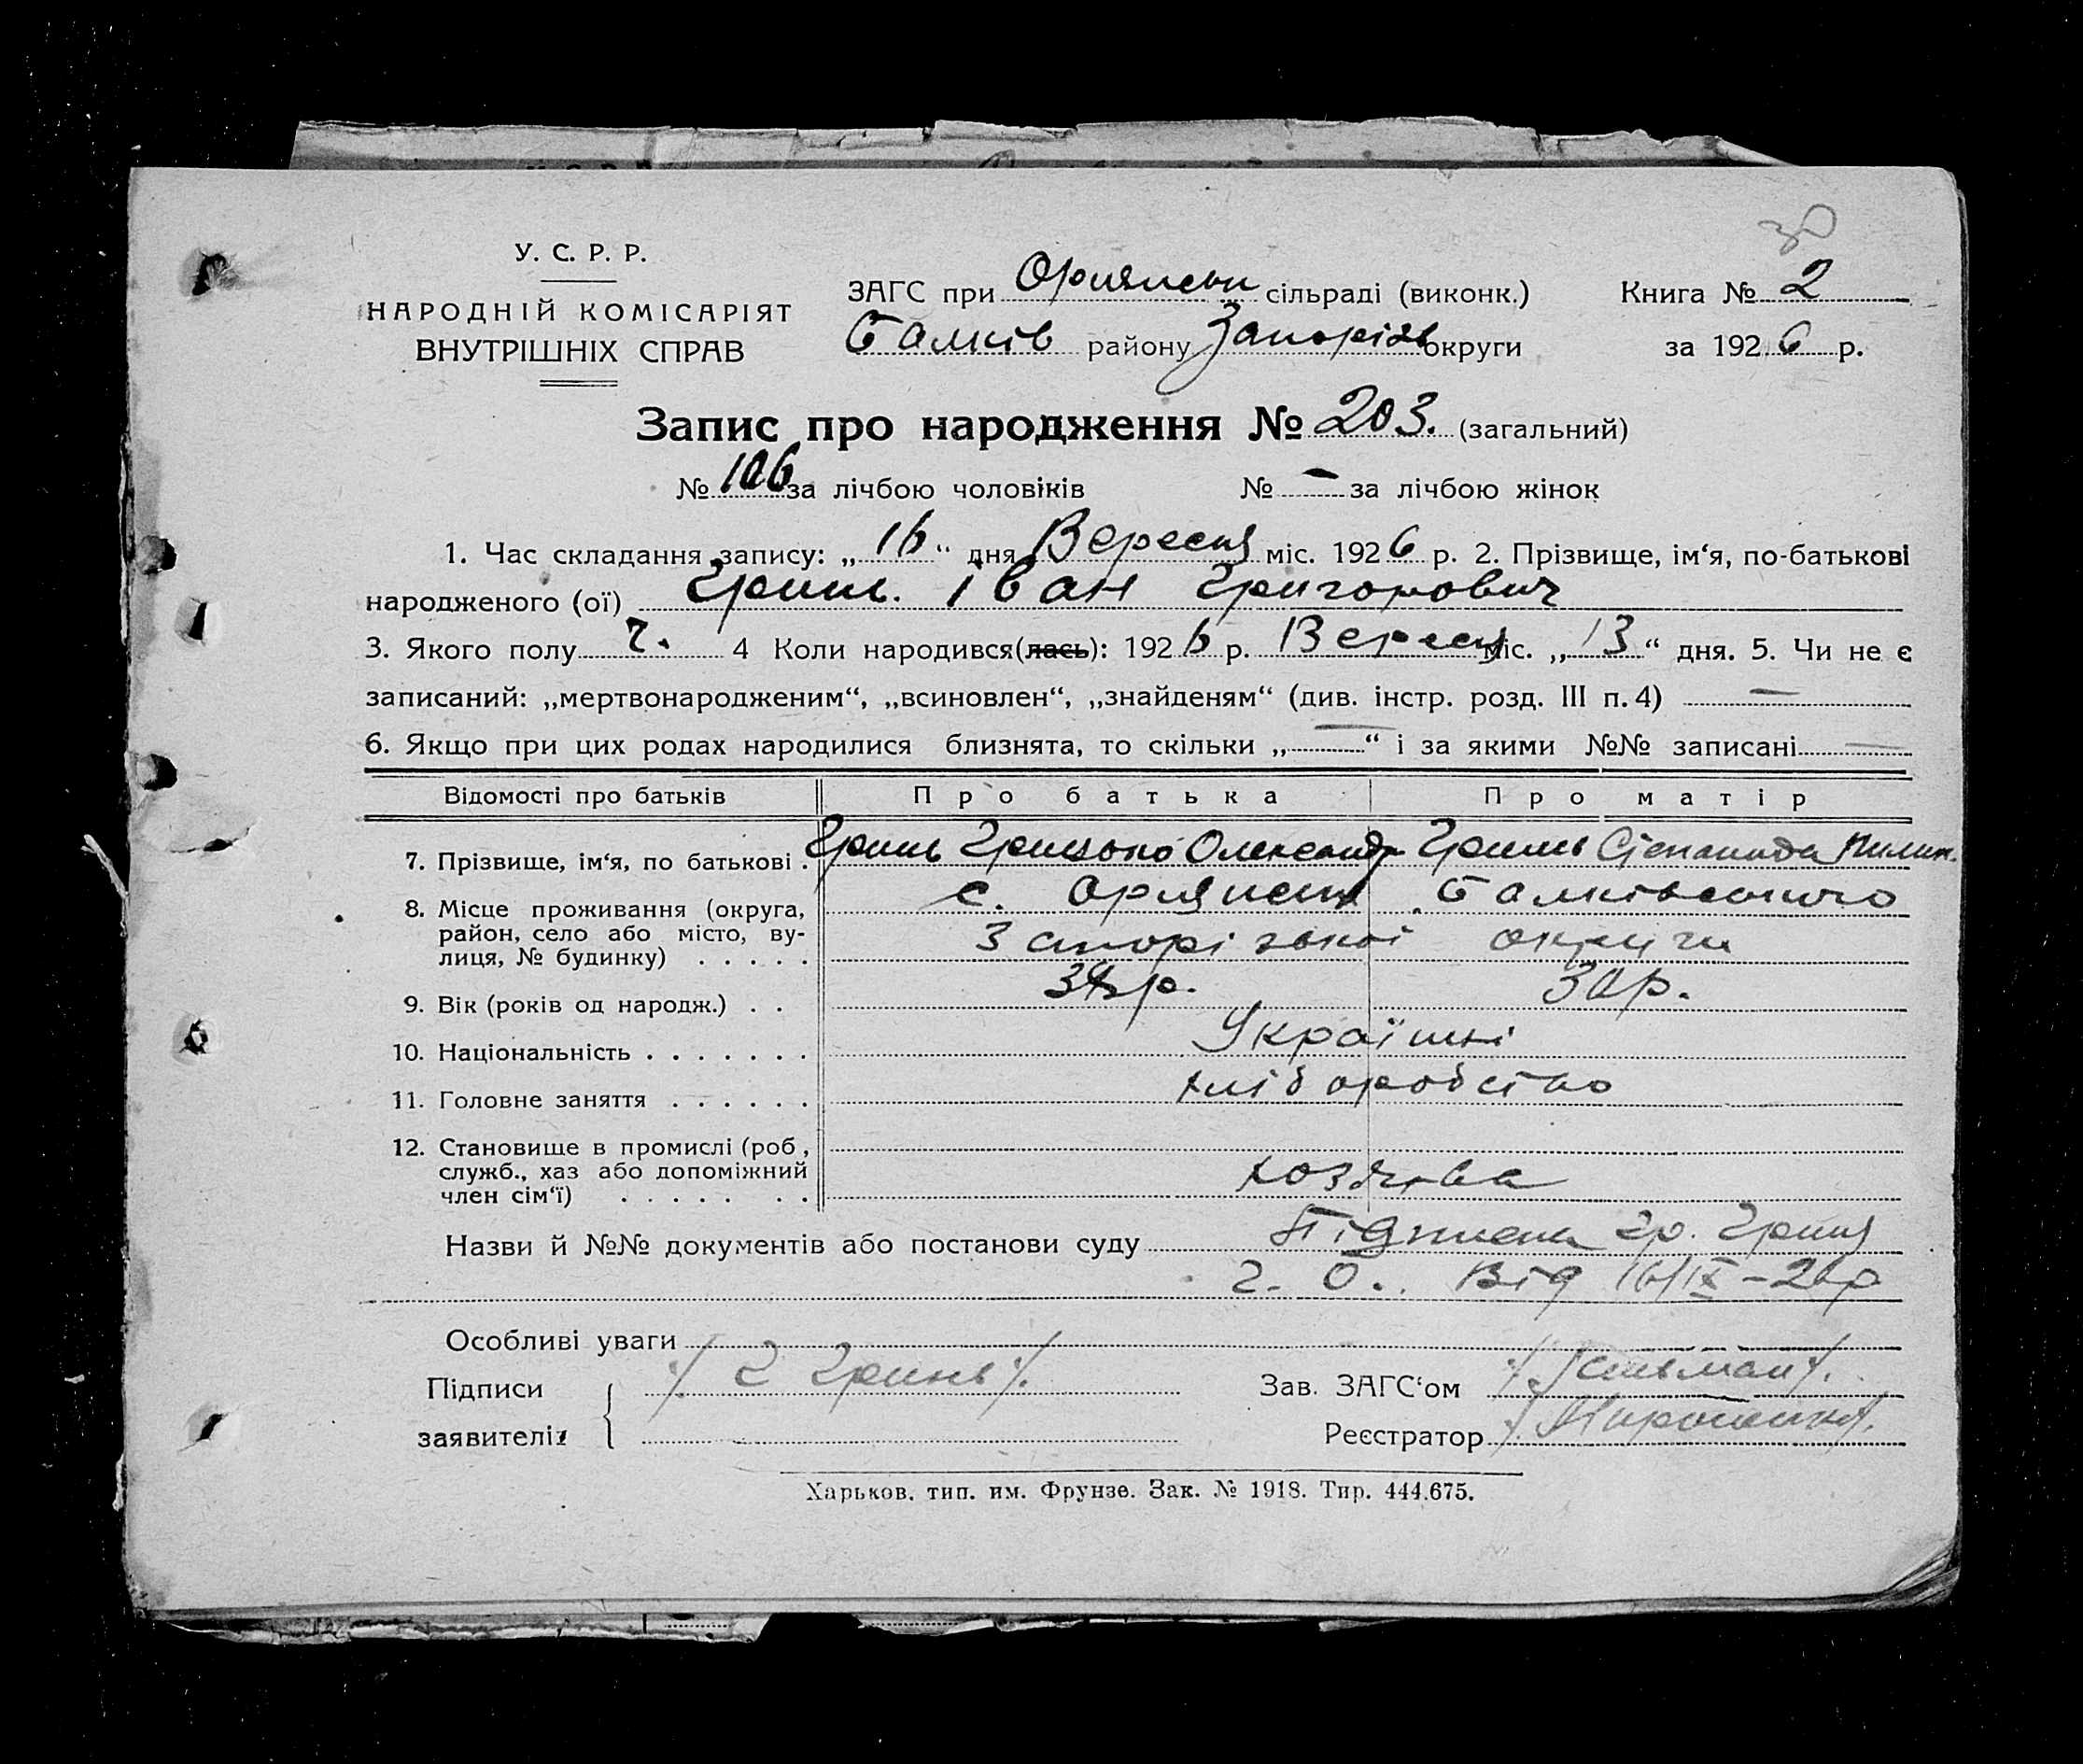 У. С. Р. Р.
НАРОДНІЙ КОМІСАРІЯТ
ВНУТРІШНІХ СПРАВ
ЗАГС при Орлянськ сільраді (виконк.) Книга № 2
Балків району Запорізьк округи за 1926 р.
Запис про народження № 203. (загальний)
№ 106 за лічбою чоловіків № — за лічбою жінок
1. Час складання запису: „16“ дня Вересня міс. 1926 р. 2. Прізвище, ім‘я, по-батькові
народженого (ої) Гринь Іван Григорович
3. Якого полу ч. 4 Коли народився(лась): 1926 р. Вересня міс. „13“ дня. 5. Чи не є
записаний: „мертвонародженим“, „всиновлен“, „знайденям“ (див. інстр. розд. III п. 4) —
6. Якщо при цих родах народилися близнята, то скільки „—“ і за якими №№ записані —
Відомості про батьків Про батька Про матір
7. Прізвище, ім‘я, по батькові . Гринь Грицько Олександр Гринь Степанида Пилип.
8. Місце проживання (округа, с. Орлянськ Балківського
район, село або місто, ву-
лиця, № будинку) . . . . . Запорізької округи
9. Вік (років од народж.) . . р. 30 р.
10. Національність . . . . . . . Українці
11. Головне заняття . . . . . . хліборобство
12. Становище в промислі (роб.,
служб., хаз або допоміжний
член сім‘ї) . . . . . . . хозяева
Назви й №№ документів або постанови суду Підписка гр. Гриня
Г. О. від 16/IX–26 р
Особливі уваги
Підписи /. Г Гринь /. Зав. ЗАГС‘ом
заявителів Реєстратор
Харьков. тип. им. Фрунзе. Зак. № 1918. Тир. 444.675.